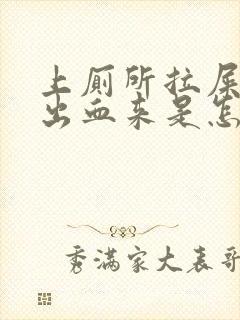 上厕所拉屎
出血来是怎
秀满家大表哥